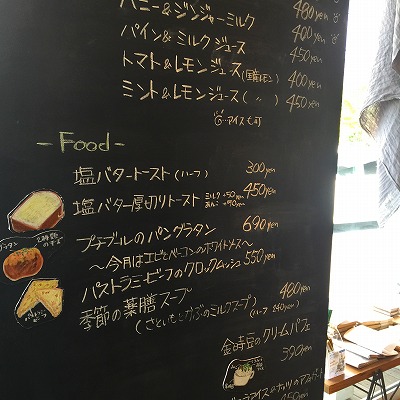 ハニー&ジンジャーミルク 480yen
パイン&ミルクジュース 400yen
トマト&レモンジュース(国産レモン) 450yen
ミント&レモンジュース( 〃 ) 400yen
450yen
アイスも可
- Food -
塩バタートースト(ハーフ) 300yen
塩バター厚切りトースト ミルク+50yen 450yen
あんこ+90yen
プチブールのパングラタン 690yen
～今月はエビとベーコンのホワイトソース～
パストラミビーフのクロックムッシュ 550yen
季節の薬膳スープ 480yen
(さといもとかぶのミルクスープ) (ハーフ 240yen)
金時豆のクリームパフェ
390yen
450yen